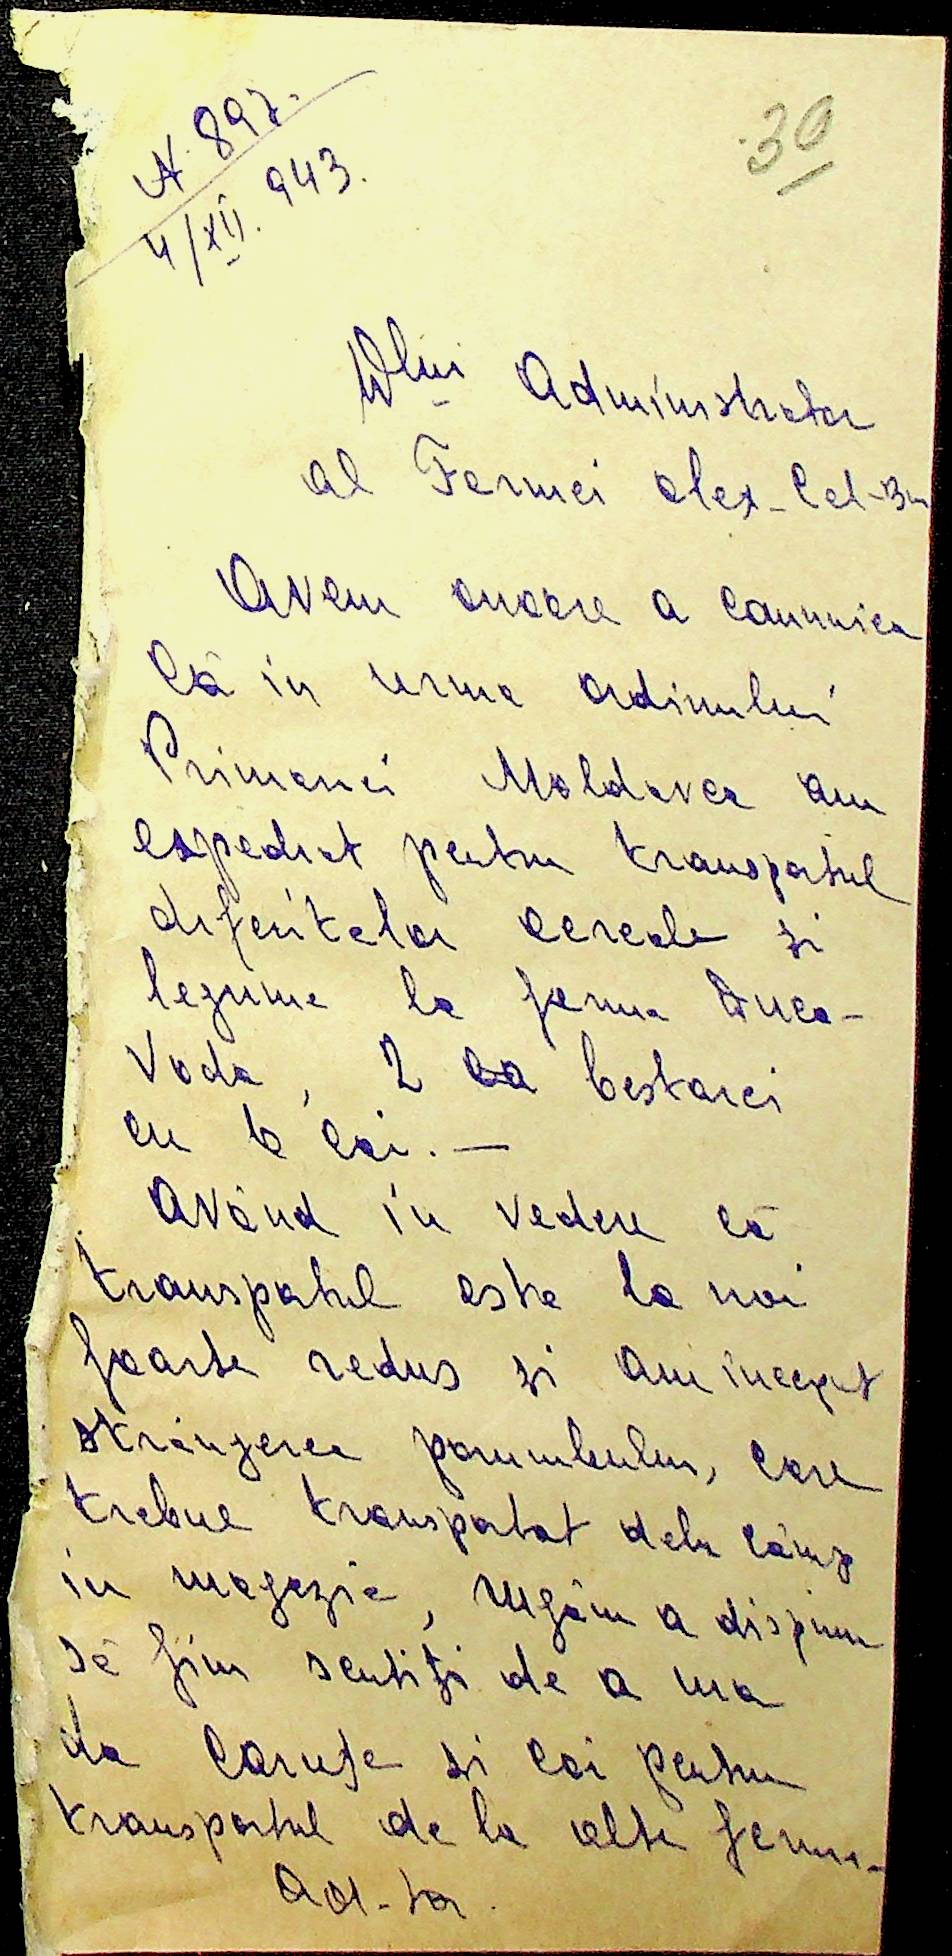 N. 897.
4/XII. 943.
30
Dlui Administrator
al Fermei Alex-Cel-Bu
Avem onoare a comunica
Că in urma ordinului
Primariei Moldovca am
expediat pentru transportul
diferitelor cereale si
legume la ferma Duca-
Voda, 2 bestarci
cu 6 cai. —
Având in vedere că
transportul este la noi
foarte redus și am inceput
strângerea porumbului, care
trebue transportat dela câmp
in magazie, Rugăm a dispune
să fim scutiți de a mai
da Caruțe si cai pentru
transportul de la alte ferme.
Ad-tor.